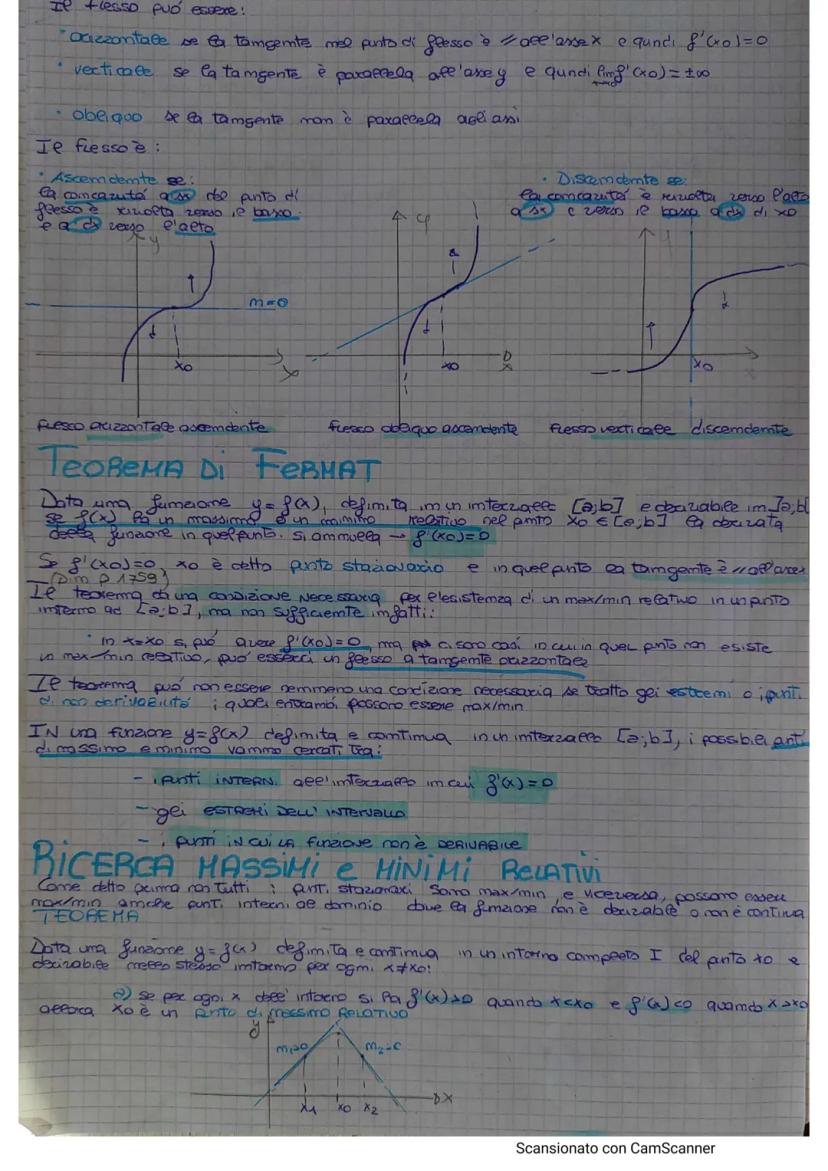 Il flesso può essere:
• orizzontale se la tangente nel punto di flesso è // all'asse x e quindi f'(x0)=0
• verticale se la tangente è parallela all'asse y e quindi lim f'(x0) = ±∞
• obliquo se la tangente non è parallela agli assi
Il flesso è :
• Ascendente se:
la concavità a sx del punto di
flesso è rivolta verso il basso
e a dx verso l'alto
• Discendente se:
la concavità è rivolta verso l'alto
a sx e verso il basso a dx di x0
y
m=0
x0
x
y
x0
x
y
x0
flesso orizzontale ascendente
flesso obliquo ascendente
flesso verticale discendente
TEOREMA Di FERMAT
Data una funzione y=f(x), definita in un intervallo [a;b] e derivabile in ]a;b[
se f(x) ha un massimo o un minimo relativo nel punto x0 ∈ [a;b] la derivata
della funzione in quel punto si annulla → f'(x0)=0
Se f'(x0)=0, x0 è detto punto stazionario e in quel punto la tangente è // all'asse x
(Dim p 1759)
Il teorema dà una condizione necessaria per l'esistenza di un max/min relativo in un punto
interno ad [a;b], ma non sufficiente infatti:
• in x=x0 si può avere f'(x0)=0, ma ci sono casi in cui in quel punto non esiste
un max/min relativo, può esserci un flesso a tangente orizzontale
Il teorema può non essere nemmeno una condizione necessaria se tratto gli estremi o i punti
di non derivabilità i quali entrambi possono essere max/min
IN una funzione y=f(x) definita e continua in un intervallo [a;b], i possibili punti
di massimo e minimo vanno cercati tra:
- i punti INTERNI dell'intervallo in cui f'(x)=0
- gli ESTREMI DELL'INTERVALLO
- i punti IN CUI LA funzione non è DERIVABILE
RICERCA MASSIMI e MINIMI RELATIVI
Come detto prima non tutti i punti stazionari sono max/min, e viceversa, possono essere
max/min anche punti interni al dominio dove la funzione non è derivabile o non è continua
TEOREMA
Data una funzione y=f(x) definita e continua in un intorno completo I del punto x0 e
derivabile nello stesso intorno per ogni x≠x0:
a) se per ogni x dell'intorno si ha f'(x)>0 quando x<x0 e f'(x)<0 quando x>x0
allora x0 è un punto di massimo RELATIVO
y
m1>0
x1
x0
x2
x
Scansionato con CamScanner